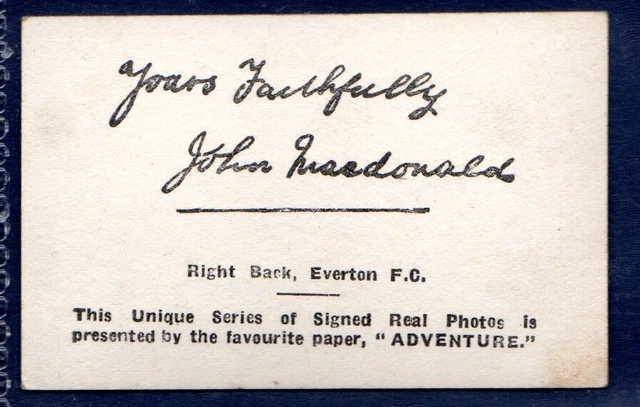 Yours Faithfully
John Macdonald
Right Back, Everton F.C.
This Unique Series of Signed Real Photos is
presented by the favourite paper, "ADVENTURE."